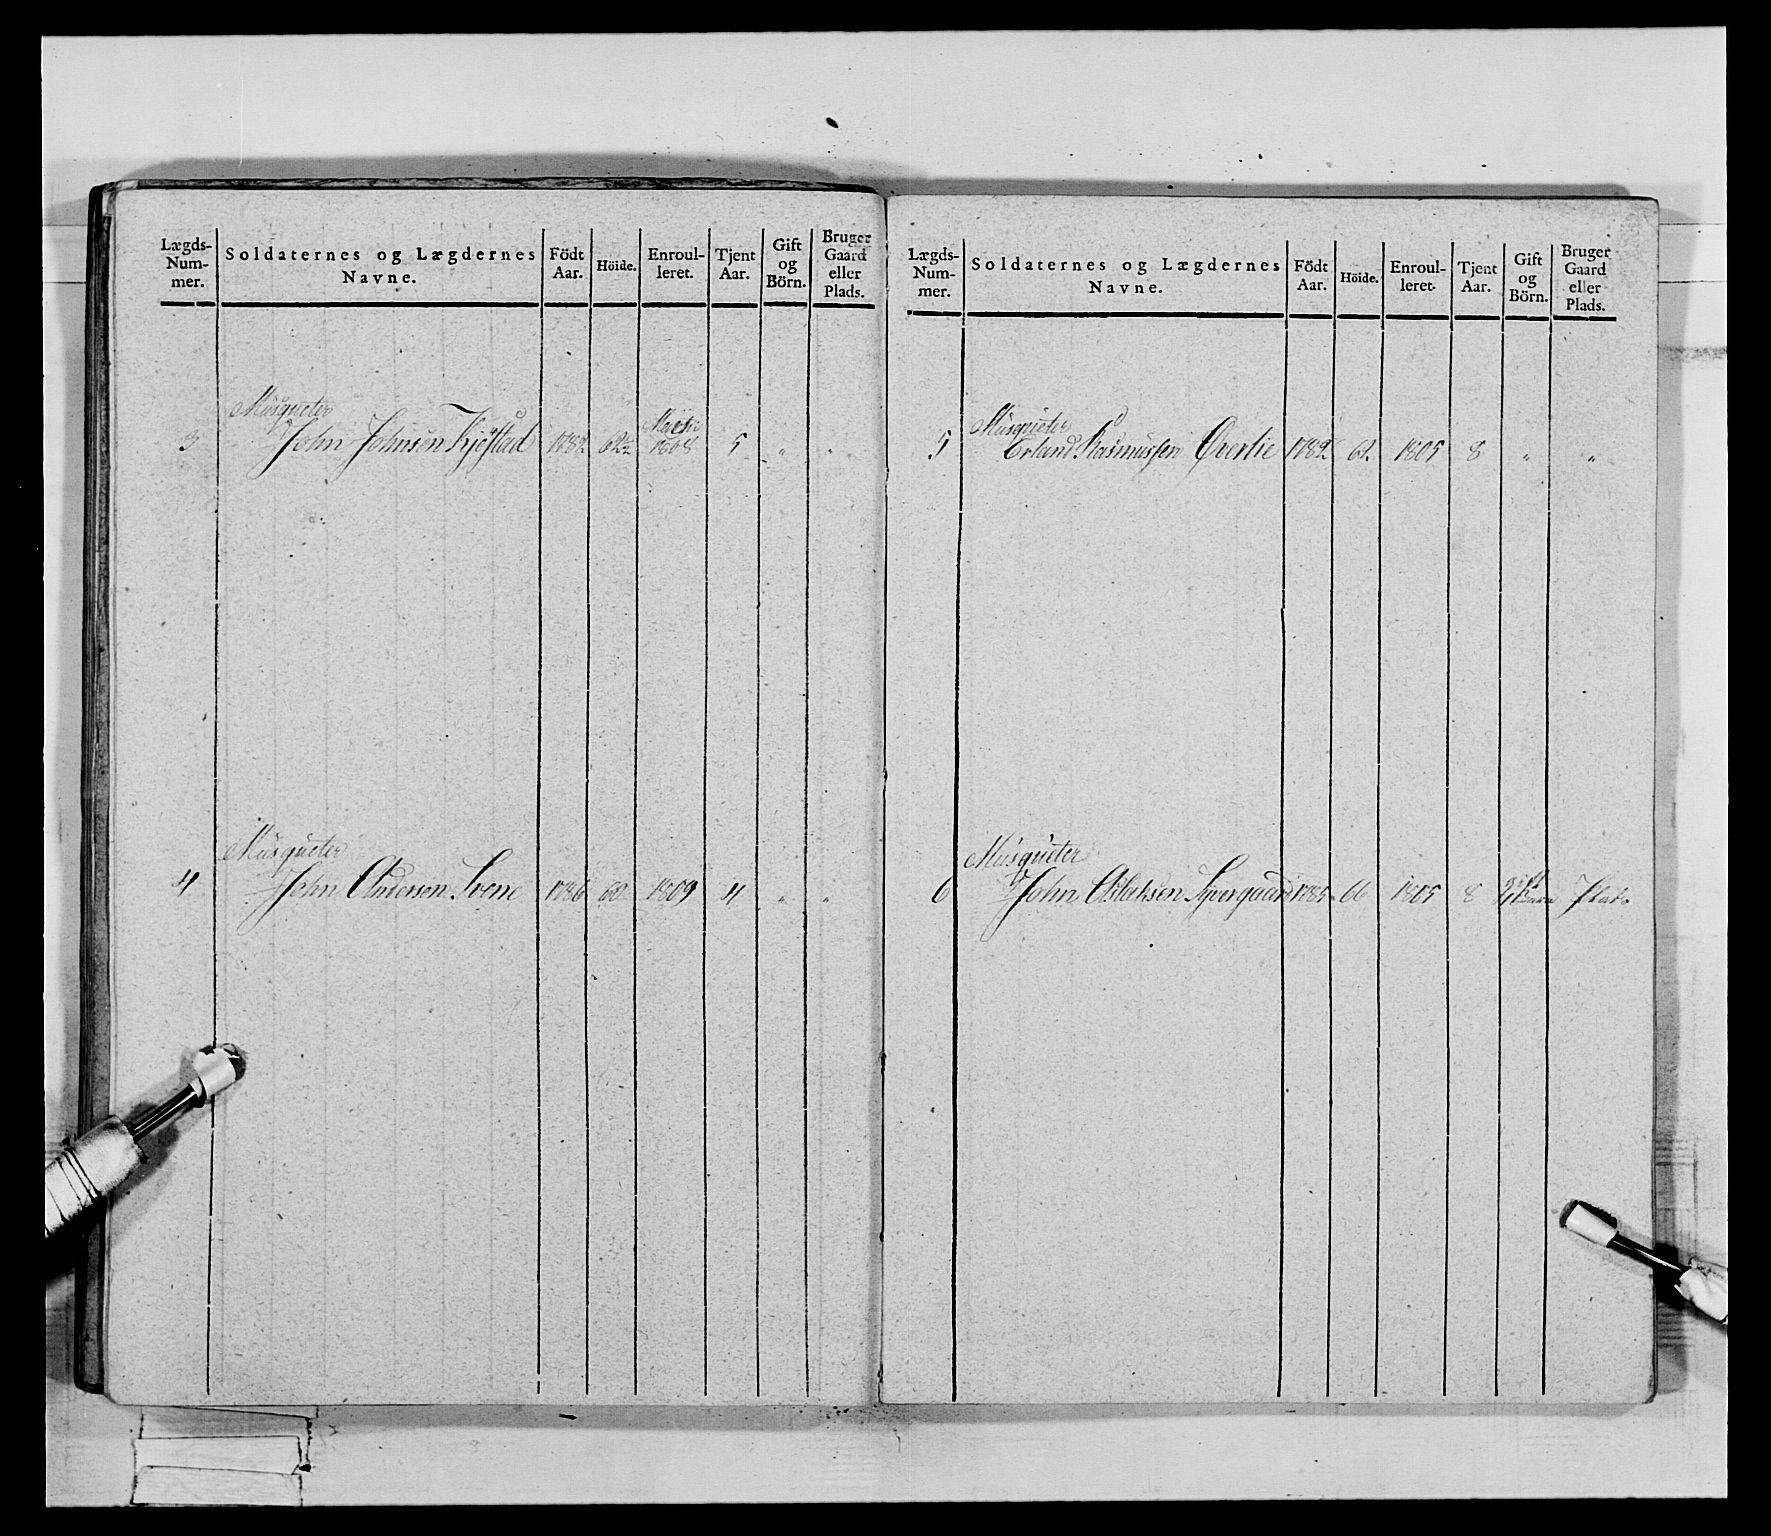 Lægds-Num-mer. Soldaternes og Lægdernes Navne. Födt Aar. Höide. Enroul-leret. Tjent Aar. Gift og Börn. Bruger Gaard eller Plads.
Musqueter
3 John Johnsen Kjøstad 1782 62½ Marts 1808 5 " "
Musqueter
4 John Andersen Svene 1786 60 1809 4 " "
Lægds-Num-mer. Soldaternes og Lægdernes Navne. Födt Aar. Höide. Enroul-leret. Tjent Aar. Gift og Börn. Bruger Gaard eller Plads.
Musqueter
5 Erland Rasmussen Øverlie 1782 62 1805 8 " "
Musqueter
6 John Aslaksen 1785 66 1805 8 gift Barn Plads